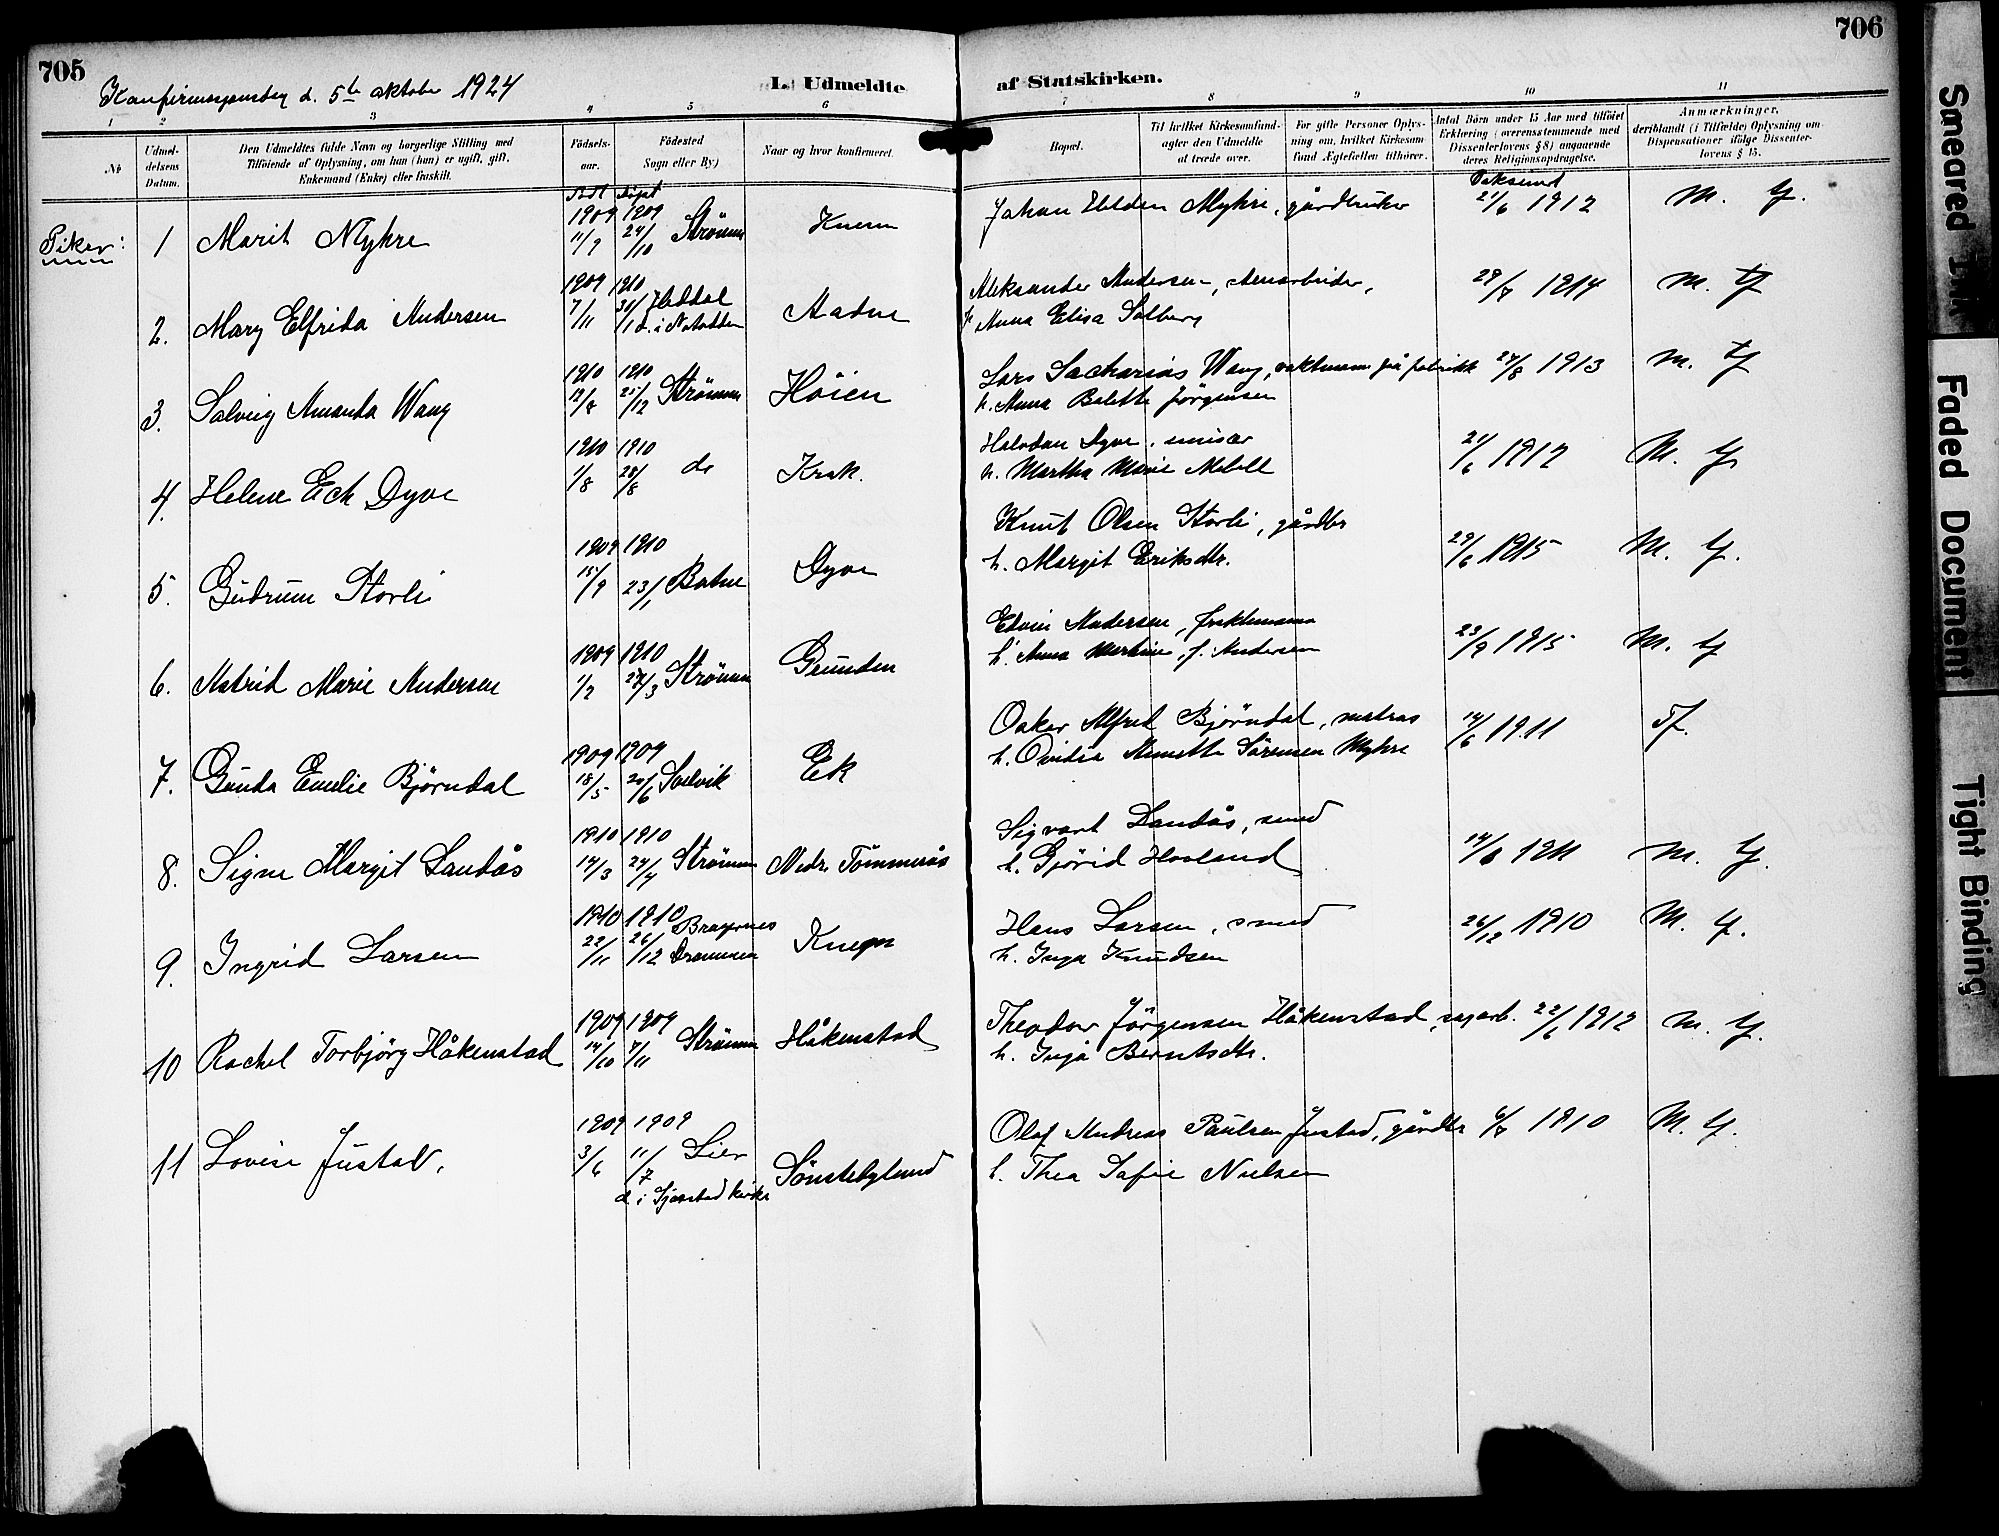 705
706
Konfirmasjonsdag d. 5te oktober 1924
L. Udmeldte
af Statskirken.
1 2 3 4 5 6 7 8 9 10 11
№
Udmel-
delsens
Datum.
Den Udmeldtes fulde Navn og borgerlige Stilling med
Tilføiende af Oplysning, om han (hun) er ugift, gift,
Enkemand (Enke) eller fraskilt.
Fødsels-
aar.
Fødested
Sogn eller By)
Naar og hvor konfirmeret.
Bopæl.
Til hvilket Kirkesamfund-
agter den Udmeldte
at træde over.
For gifte Personer Oplys-
ning om, hvilket Kirkesam-
fund Ægtefællen tilhører.
Antal Børn under 15 Aar med tilføiet
Erklæring (overensstemmende med
Dissenterlovens § 8) angaaende
deres Religionsopdragelse.
Anmærkninger,
deriblandt (i Tilfælde) Oplysning om
Dispensationer ifølge Dissenter-
lovens § 15.
Født Døpt
Vaksinert
Piker:
1 Marit Myhre 1909 11/9 1909 24/10 Strømm Knem
Johan Helden Myhre, gårdbruker 21/6 1912 M. G.
2. Mary Elfrida Andersen 1909 7/11 1910 30/1 Heddal d. i Notodden Aadne
Aleksander Andersen,
h. Anna Elisa Solberg 29/7 1914 M. G
3. Solveig Amanda Wang 1910 12/8 1910 25/12 Strømm Høien
Lars Sacharias Wang, vaktmann på fabrikk 27/8 1913 M. G
h. Anna Bolette Jørgensen
4. Helene Eck Dyve 1910 1/8 1910 28/8 do Krok.
Halvdan Dyve, emisær
h. Martha Marie 21/6 1912 M. G
5. Gudrun Storli 1909 15/9 1910 23/1 Botne Dyve
Knut Olsen Storli, gårdbr
h. Margit Eriksdtr. 29/6 1915 M. G.
6. Astrid Marie Andersen 1909 1/2 1910 28/3 Strømm Grunden
Edvin Andersen, fraktemann
h. Anna Martine, f. Andersen 23/9 1915 M. G
7. Gunda Emelie Bjørndal 1909 18/5 1909 20/6 Solvik Ek
Oskar Alfred Bjørndal, matros 14/6 1911 Tf.
h. Ovidia Annette Sørensen Myhre
8. Signe Margit Landås 1910 14/3 1910 24/4 Strømm Nedr. Tømmerås
Sigvart Landås, smed
h. Gjørid Hovland 14/8 1911 M. G.
9. Ingrid Larsen 1910 22/11 1910 26/12 Bragernes Drammen Knepn
Hans Larsen, smed
h. Inga Knudsen 26/12 1910 M. G.
10 Rachel Torbjørg Håkenstad 1909 14/10 1909 7/11 Strømm Håkenstad
Theodor Jørgensen Håkenstad, sagarb. 22/6 1912 M. G.
h. Inga Berntsdtr.
11 Lovise Justad. 1909 3/6 1909 11/7 Lier d i Sjøstad kirke Sønstebylund
Olaf Andreas Paulsen Justad, gårdbr 6/7 1910 M. G.
h. Thea Sofie Nielsen
Smeared Ink
Faded Document
Tight Binding